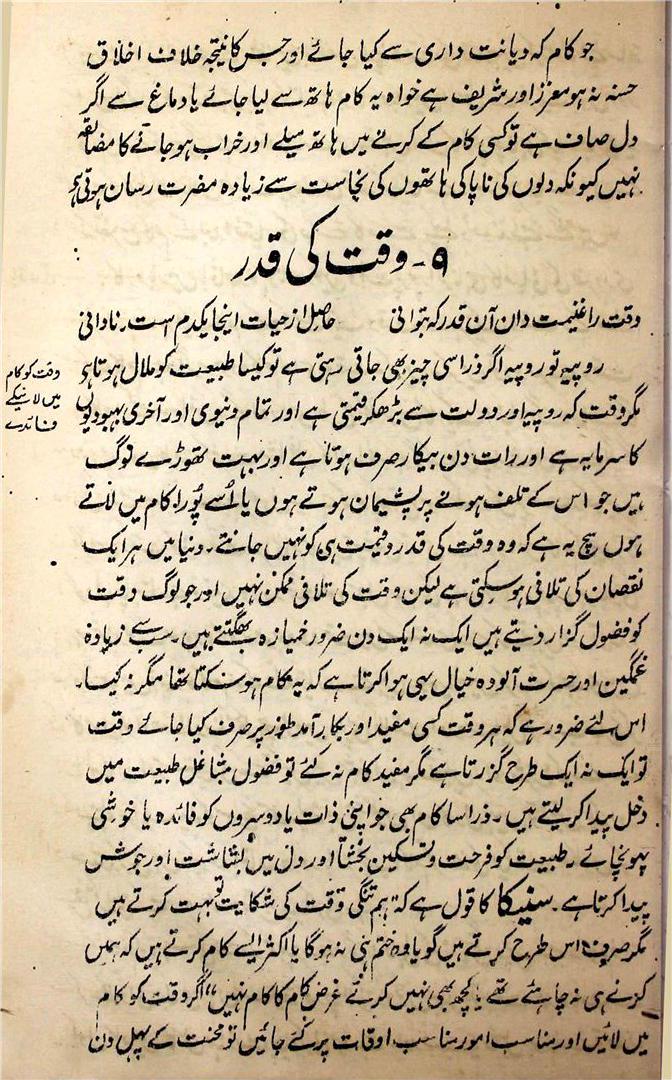 جو کام کہ دیانت داری سے کیا جائے اور جس کا نتیجہ خلاف اخلاق
حسنہ نہ ہو معزز اور شریف ہے خواہ یہ کام ہاتھ سے لیا جائے یا دماغ سے اگر
دل صاف ہے تو کسی کام کے کرنے میں ہاتھ میلے اور خراب ہو جانے کا مضائقہ
نہیں کیونکہ دلوں کی ناپاکی ہاتھوں کی نجاست سے زیادہ مضرت رسان ہوتی ہے
۹۔ وقت کی قدر
وقت را غنیمت دان آن قدر کہ بتوانی حاصل از حیات اینجا یکدم است۔ نادانی
روپیہ تو روپیہ اگر ذراسی چیز بھی جاتی رہتی ہے تو کیسا طبیعت کو ملال ہوتا ہے
وقت کو کام
میں لانیکے
فائدے
مگر وقت کہ روپیہ اور دولت سے بڑھکر قیمتی ہے اور تمام دنیوی اور آخری بہبودیوں
کا سرمایہ ہے اور رات دن بیکار صرف ہوتا ہے اور بہت تھوڑے لوگ
ہیں جو اس کے تلف ہونے پر پشیمان ہوتے ہوں یا اُسے پُورا کام میں لاتے
ہوں سچ یہ ہے کہ وہ وقت کی قدر و قیمت ہی کو نہیں جانتے۔ دنیا میں ہر ایک
نقصان کی تلافی ہو سکتی ہے لیکن وقت کی تلافی ممکن نہیں اور جو لوگ وقت
کو فضول گزار دیتے ہیں ایک نہ ایک دن ضرور خمیازہ بھگتتے ہیں۔ سب سے زیادہ
غمگین اور حسرت آلودہ خیال یہی ہوا کرتا ہے کہ یہ کام ہو سکتا تھا مگر نہ کیا۔
اس لئے ضرور ہے کہ ہر وقت کسی مفید اور بکار آمد طور پر صرف کیا جائے وقت
تو ایک نہ ایک طرح گزرتا ہے مگر مفید کام نہ کئے تو فضول مشاغل طبیعت میں
دخل پیدا کر لیتے ہیں۔ ذرا سا کام بھی جو اپنی ذات یا دوسروں کو فائدہ یا خوشی
پہونچائے۔ طبیعت کو فرحت و تسکین بخشتا اور دل میں بشاشت اور جوش
پیدا کرتا ہے۔ سنیکا کا قول ہے کہ "ہم تنگی وقت کی شکایت تو بہت کرتے ہیں
مگر صرف اس طرح کرتے ہیں گویا وہ ختم ہی نہ ہو گا یا اکثر ایسے کام کرتے ہیں کہ ہمیں
کرنے ہی نہ چاہئے تھے یا کچھ بھی نہیں کرتے غرض کام کا کام نہیں" اگر وقت کو کام
میں لائیں اور مناسب امور مناسب اوقات پر کئے جائیں تو محنت کے پہل دن